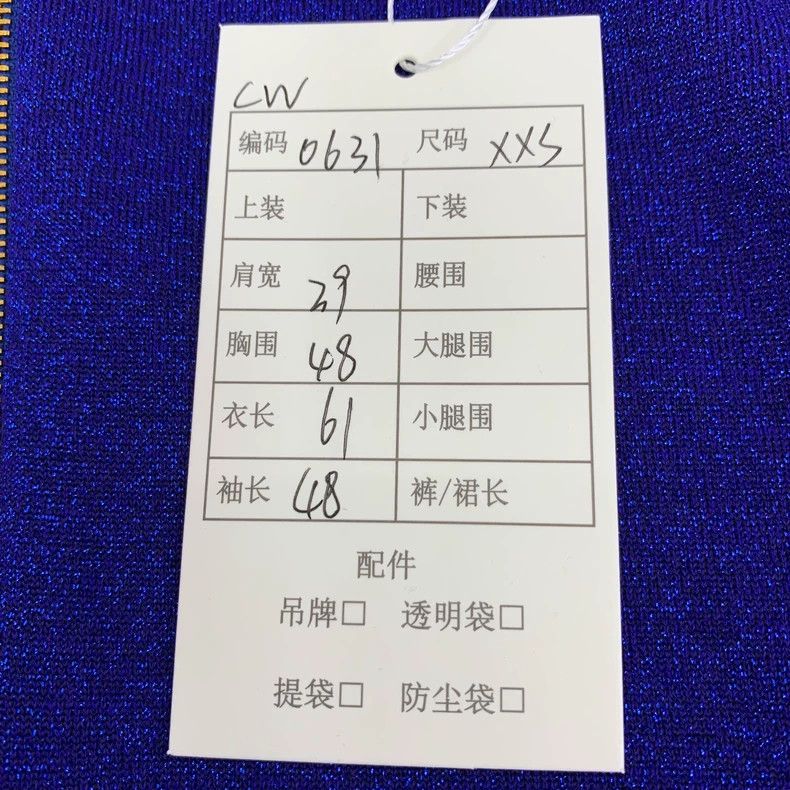 CW
编码 0631 尺码 XXS
上装 下装
肩宽 29 腰围
胸围 48 大腿围
衣长 61 小腿围
袖长 48 裤/裙长
配件
吊牌□ 透明袋□
提袋□ 防尘袋□